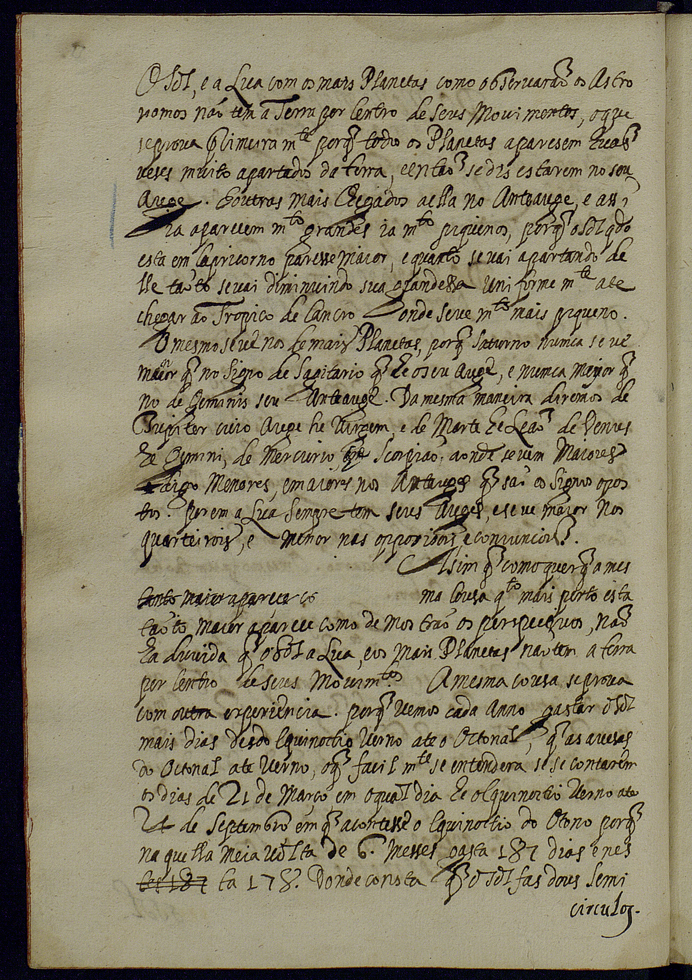 O Sol, e a Lua com os mais Planetas como observarão os Astro
nomos não tem a Terra por Centro de seus Movimentos, o que
se prova primeira mte porq̃ todos os Planetas aparesem
veses muito apartados da terra, e então se dis estarem no seu
Auge. E outras mais Chegados a ella no Anteauge, e assi
ia aparecem mto grandes ia mto piquenos, porq̃ o Sol qdo
esta em Capricorno paresse maior, e quanto se vai apartando de
lle tanto se vai diminuindo sua grandessa uniforme mte ate
chegar ao Tropico de Cancro donde se ve mto mais piqueno.
O mesmo se ve nos de mais Planetas, porq̃ Saturno nunca se ve
maior q̃ no Signo de Sagitario q̃ he o seu Auge, e nunca maior q̃
no de Geminis seu Anteauge. Da mesma maneira diremos de
Jupiter cuio Auge he Virgem, e de Marte he Leão de Venus
he Gemini, de Mercurio Scorpião. aonde se vem Maiores
digo Menores, e maiores nos Anteauges q̃ são os Signos opos
tos. Porem a Lua Sempre tem seus Auges, e se ve maior nos
quarteirois, e menor nas opposisois e coniuncois.
Assim q̃ como quer q̃ a mes
tanto maior aparece ma Cousa qto mais perto esta
tanto maior aparece como demostrão os perspectivos, não
ha duvida q̃ o Sol a Lua, e os mais Planetas não tem a terra
por Centro de seus Movimtos. A mesma cousa se prova
com outra experiencia. porq̃ vemos cada Anno gastar o Sol
mais dias desdo Equinoctio Verno ate o Octonal, q̃ as avesas
do Octonal ate Verno, o q̃ facil mte se entendera se se contarem
os dias de 21 de Março em o qual dia he o Equinoctio Verno ate
24 de Septembro em q̃ acontesse o Equinoctio do Otono porq̃
na quella meia volta de 6. messes gasta 187 dias e nes
ta 178. Donde consta q̃ o Sol fas dous Semi
circulos.